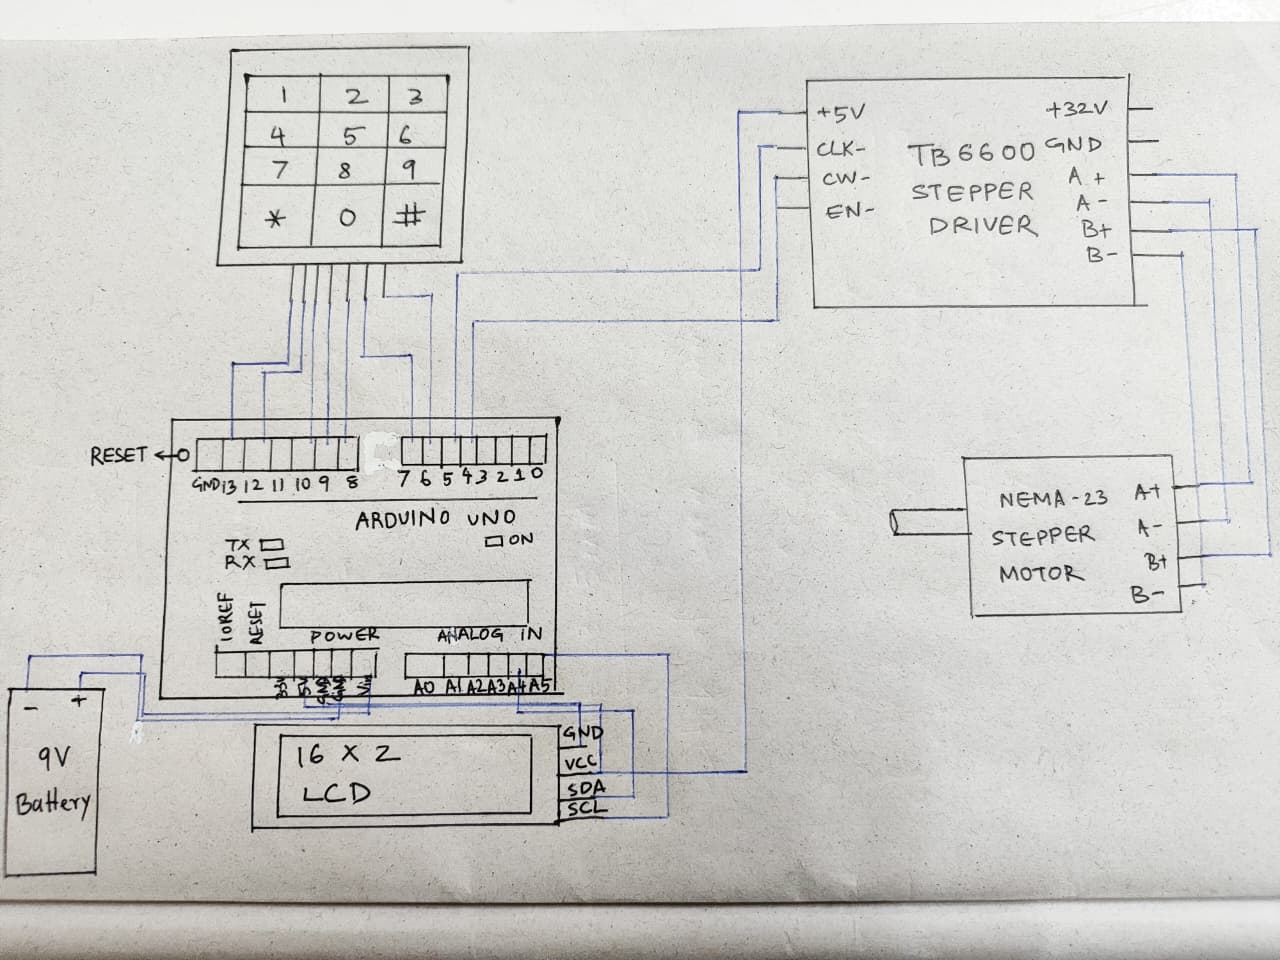 1 2 3
4 5 6
7 8 9
* 0 #
+5V
CLK-
CW-
EN-
TB6600
STEPPER
DRIVER
+32V
GND
A+
A-
B+
B-
RESET
GND 13 12 11 10 9 8
7 6 5 4 3 2 1 0
ARDUINO UNO
TX
RX
ON
IOREF
RESET
POWER
ANALOG IN
Vin
A0 A1 A2 A3 A4 A5
NEMA-23
STEPPER
MOTOR
A+
A-
B+
B-
- +
9V
Battery
16 X 2
LCD
GND
VCC
SDA
SCL